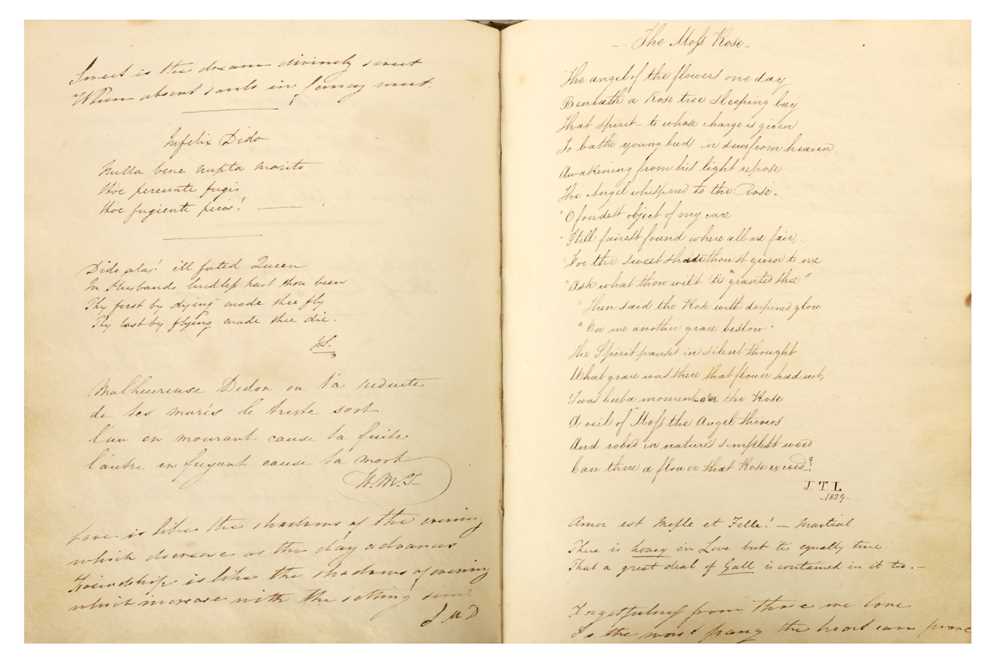 Sweet is the dream divinely sweet
When absent souls in fancy meet.
Infelix Dido
Nulla bene nupta marito
Hoc pereunte fugis
Hoc fugiente peris!
Dido alas! ill fated Queen
In Husbands luckless hast thou been
Thy first by dying made thee fly
Thy last by flying made thee die.
Malheureuse Didon ou t'a reduite
de tes maris le triste sort
l'un en mourant cause ta fuite
l'autre en fuyant cause ta mort
W.M.T.
Love is like the shadows of the evening
which decrease as the day advances
Friendship is like the shadows of evening
which increase with the setting sun
J M D
- The Moss Rose -
The angel of the flowers one day
Beneath a Rose tree sleeping lay
That spirit to whose charge is given
To bathe young buds in dews from heaven
Awakening from his light repose
The Angel whispered to the Rose.
"O fondest object of my care
"Still fairest found where all are fair
"For the sweet shade thou'st given to me
"Ask what thou wilt tis "granted thee"
"Then said the Rose with deepened glow
"On me another grace bestow.
The Spirit paused in silent thought
What grace was there that flower had not,
'Twas but a moment o'er the Rose
A veil of Moss the Angel throws
And robed in nature's simplest weed
Can there a flower that Rose exceed?
J. T. L
1829.
Amor est Melle et Felle! - Martial
There is honey in Love but tis equally true
That a great deal of Gall is contained in it too. -
Forgetfulness from those we love
Is the worst pang the heart can prove